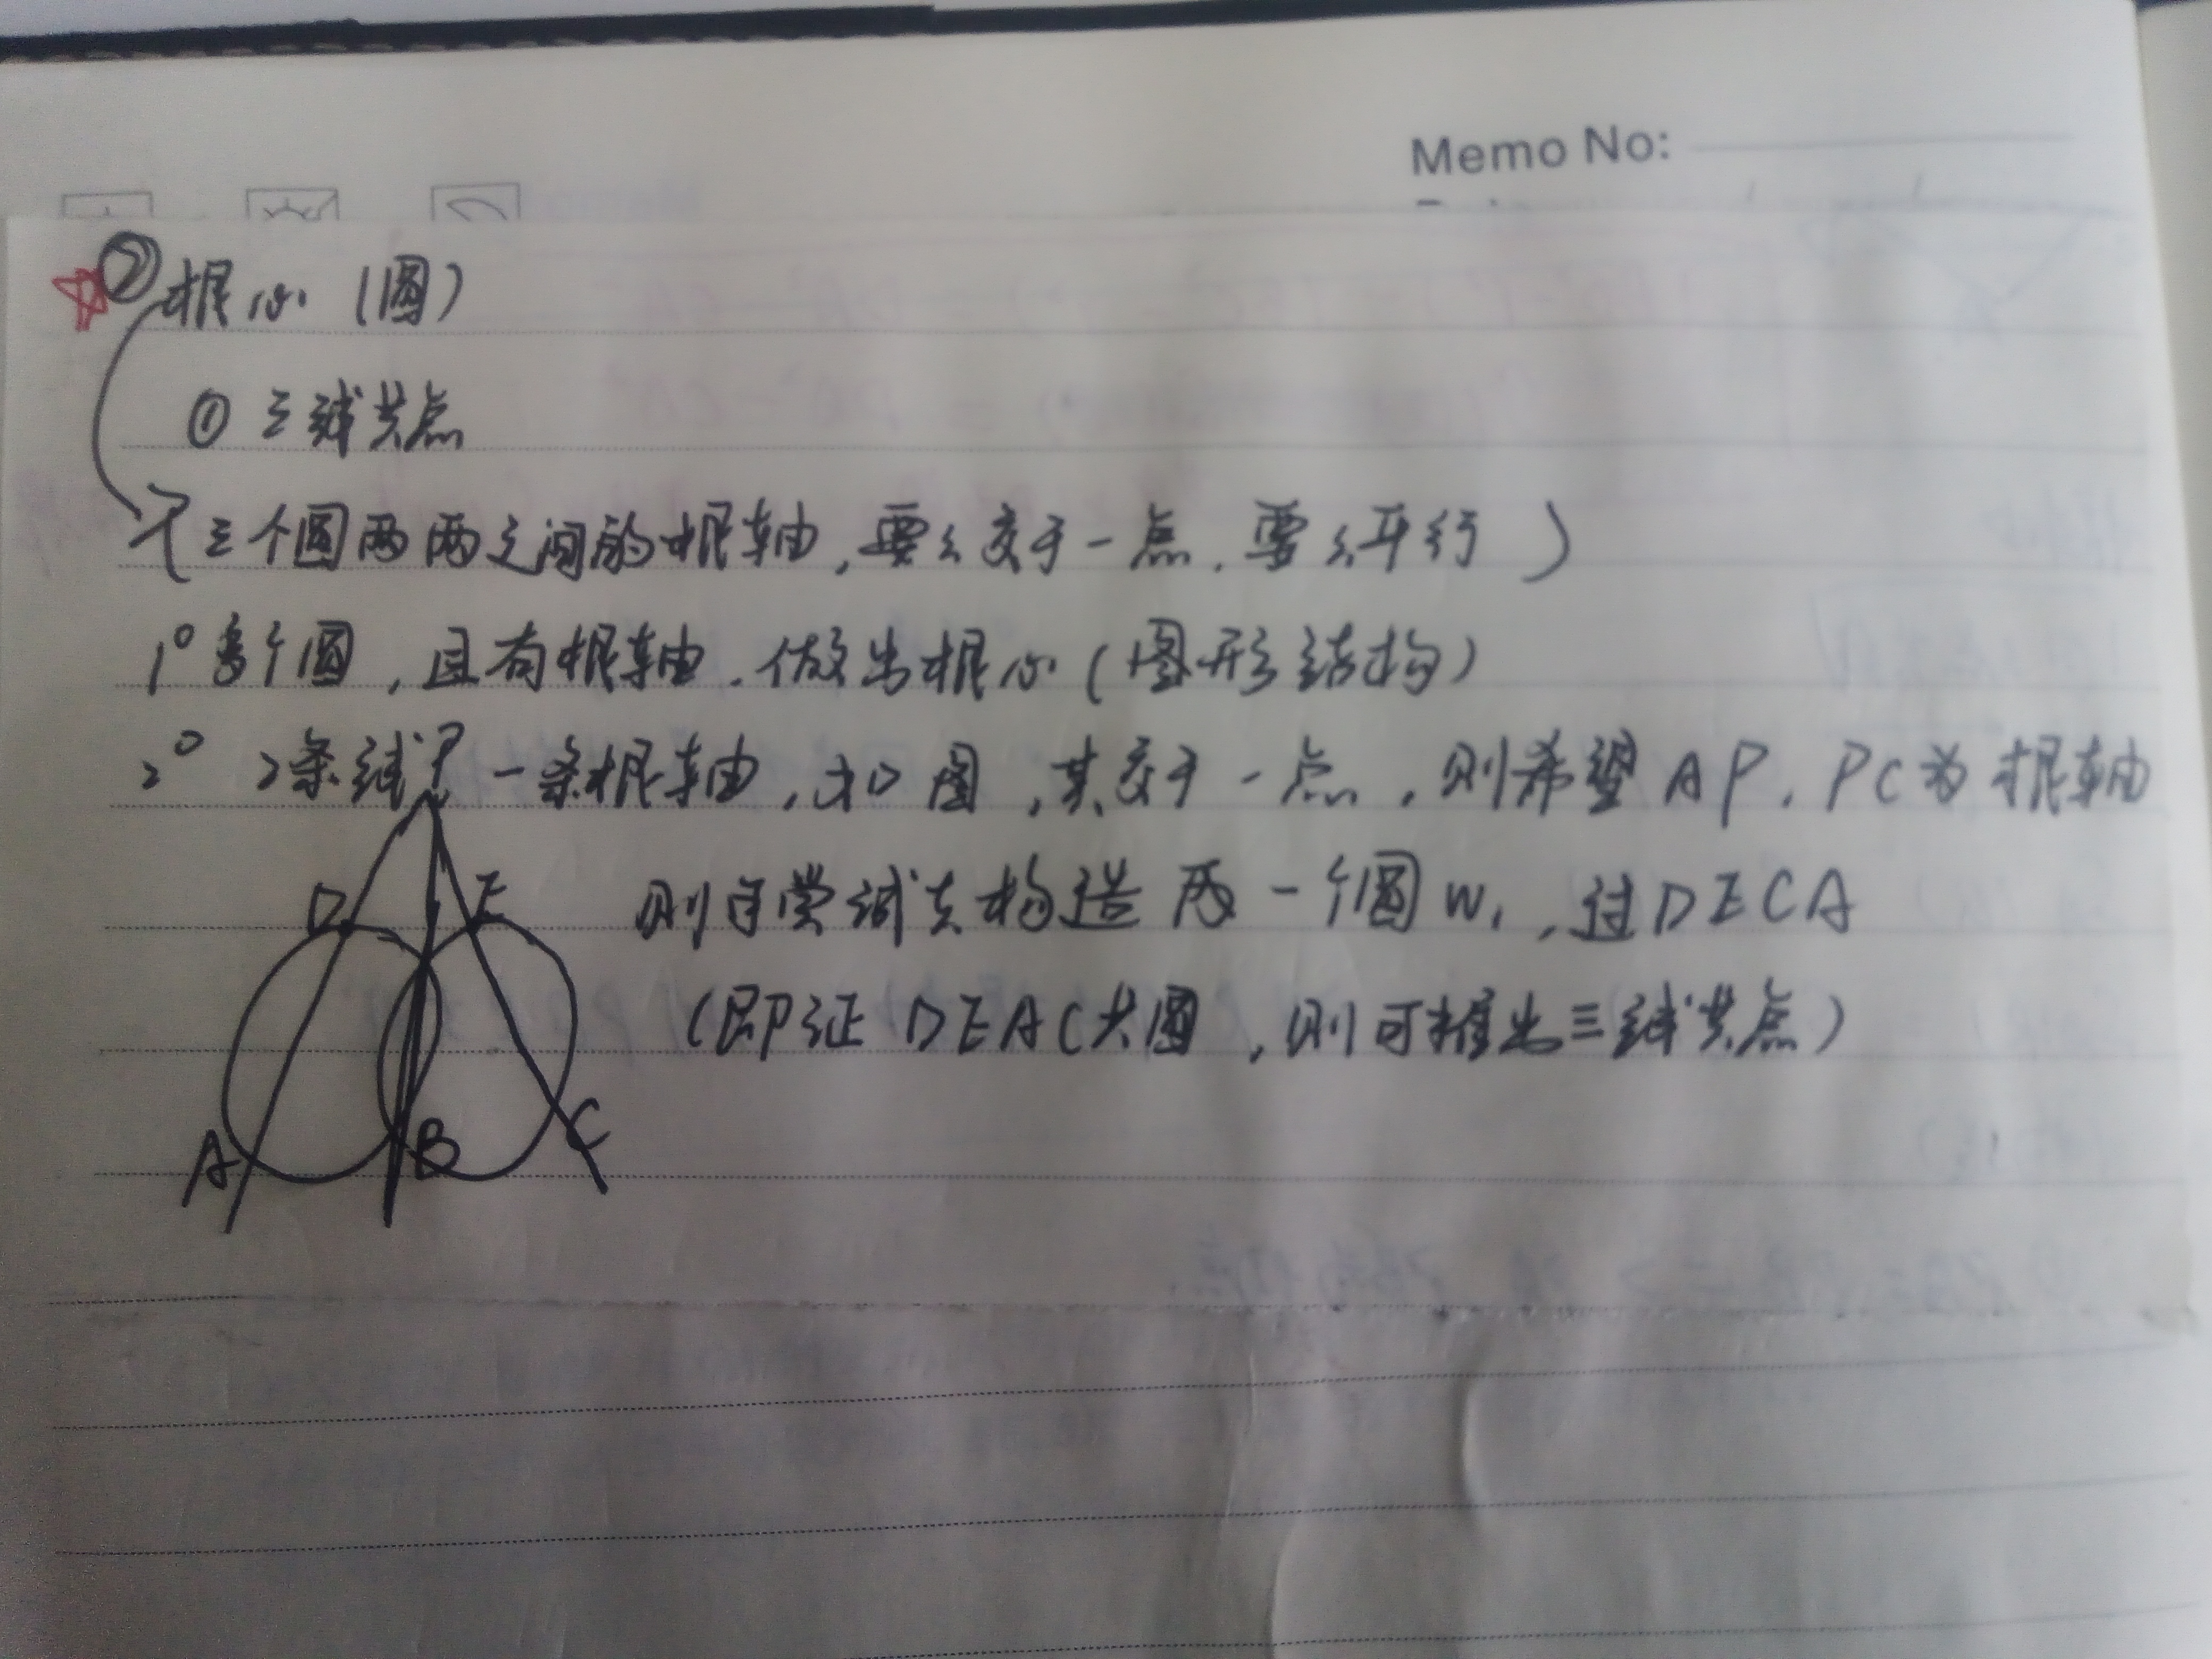 Memo No:
② 根心（圆）
① 三线共点
（三个圆两两之间的根轴，要么交于一点，要么平行）
1° 多个圆，且有根轴，做出根心（图形结构）
2° 2条线 一条根轴，和圆，其交于一点，则希望AP，PC为根轴
P
D E
则 尝试去构造 一个圆W₁，过DECA
（即证DEAC共圆，则可推出三线共点）
A B C